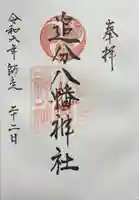 奉拝
追分八幡神社
令和六年師走
二十二日